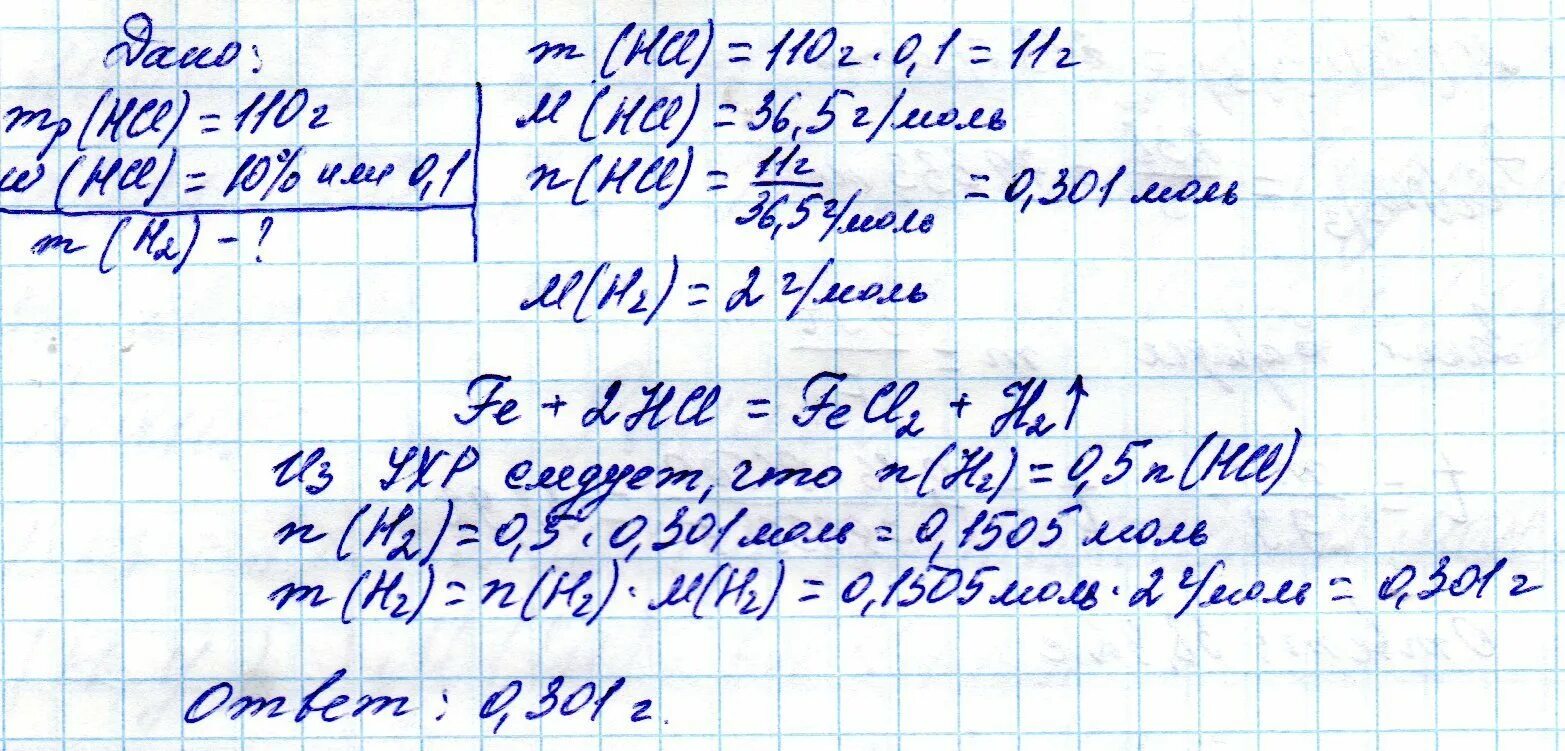 Дано:
mр(HCl) = 110г
w(HCl) = 10% или 0,1
m(H₂) - ?
m(HCl) = 110г · 0,1 = 11г
M(HCl) = 36,5г/моль
n(HCl) = 11г / 36,5г/моль = 0,301 моль
M(H₂) = 2г/моль
Fe + 2HCl = FeCl₂ + H₂↑
Из УХР следует, что n(H₂) = 0,5n(HCl)
n(H₂) = 0,5 · 0,301 моль = 0,1505 моль
m(H₂) = n(H₂) · M(H₂) = 0,1505 моль · 2г/моль = 0,301г
Ответ: 0,301г.